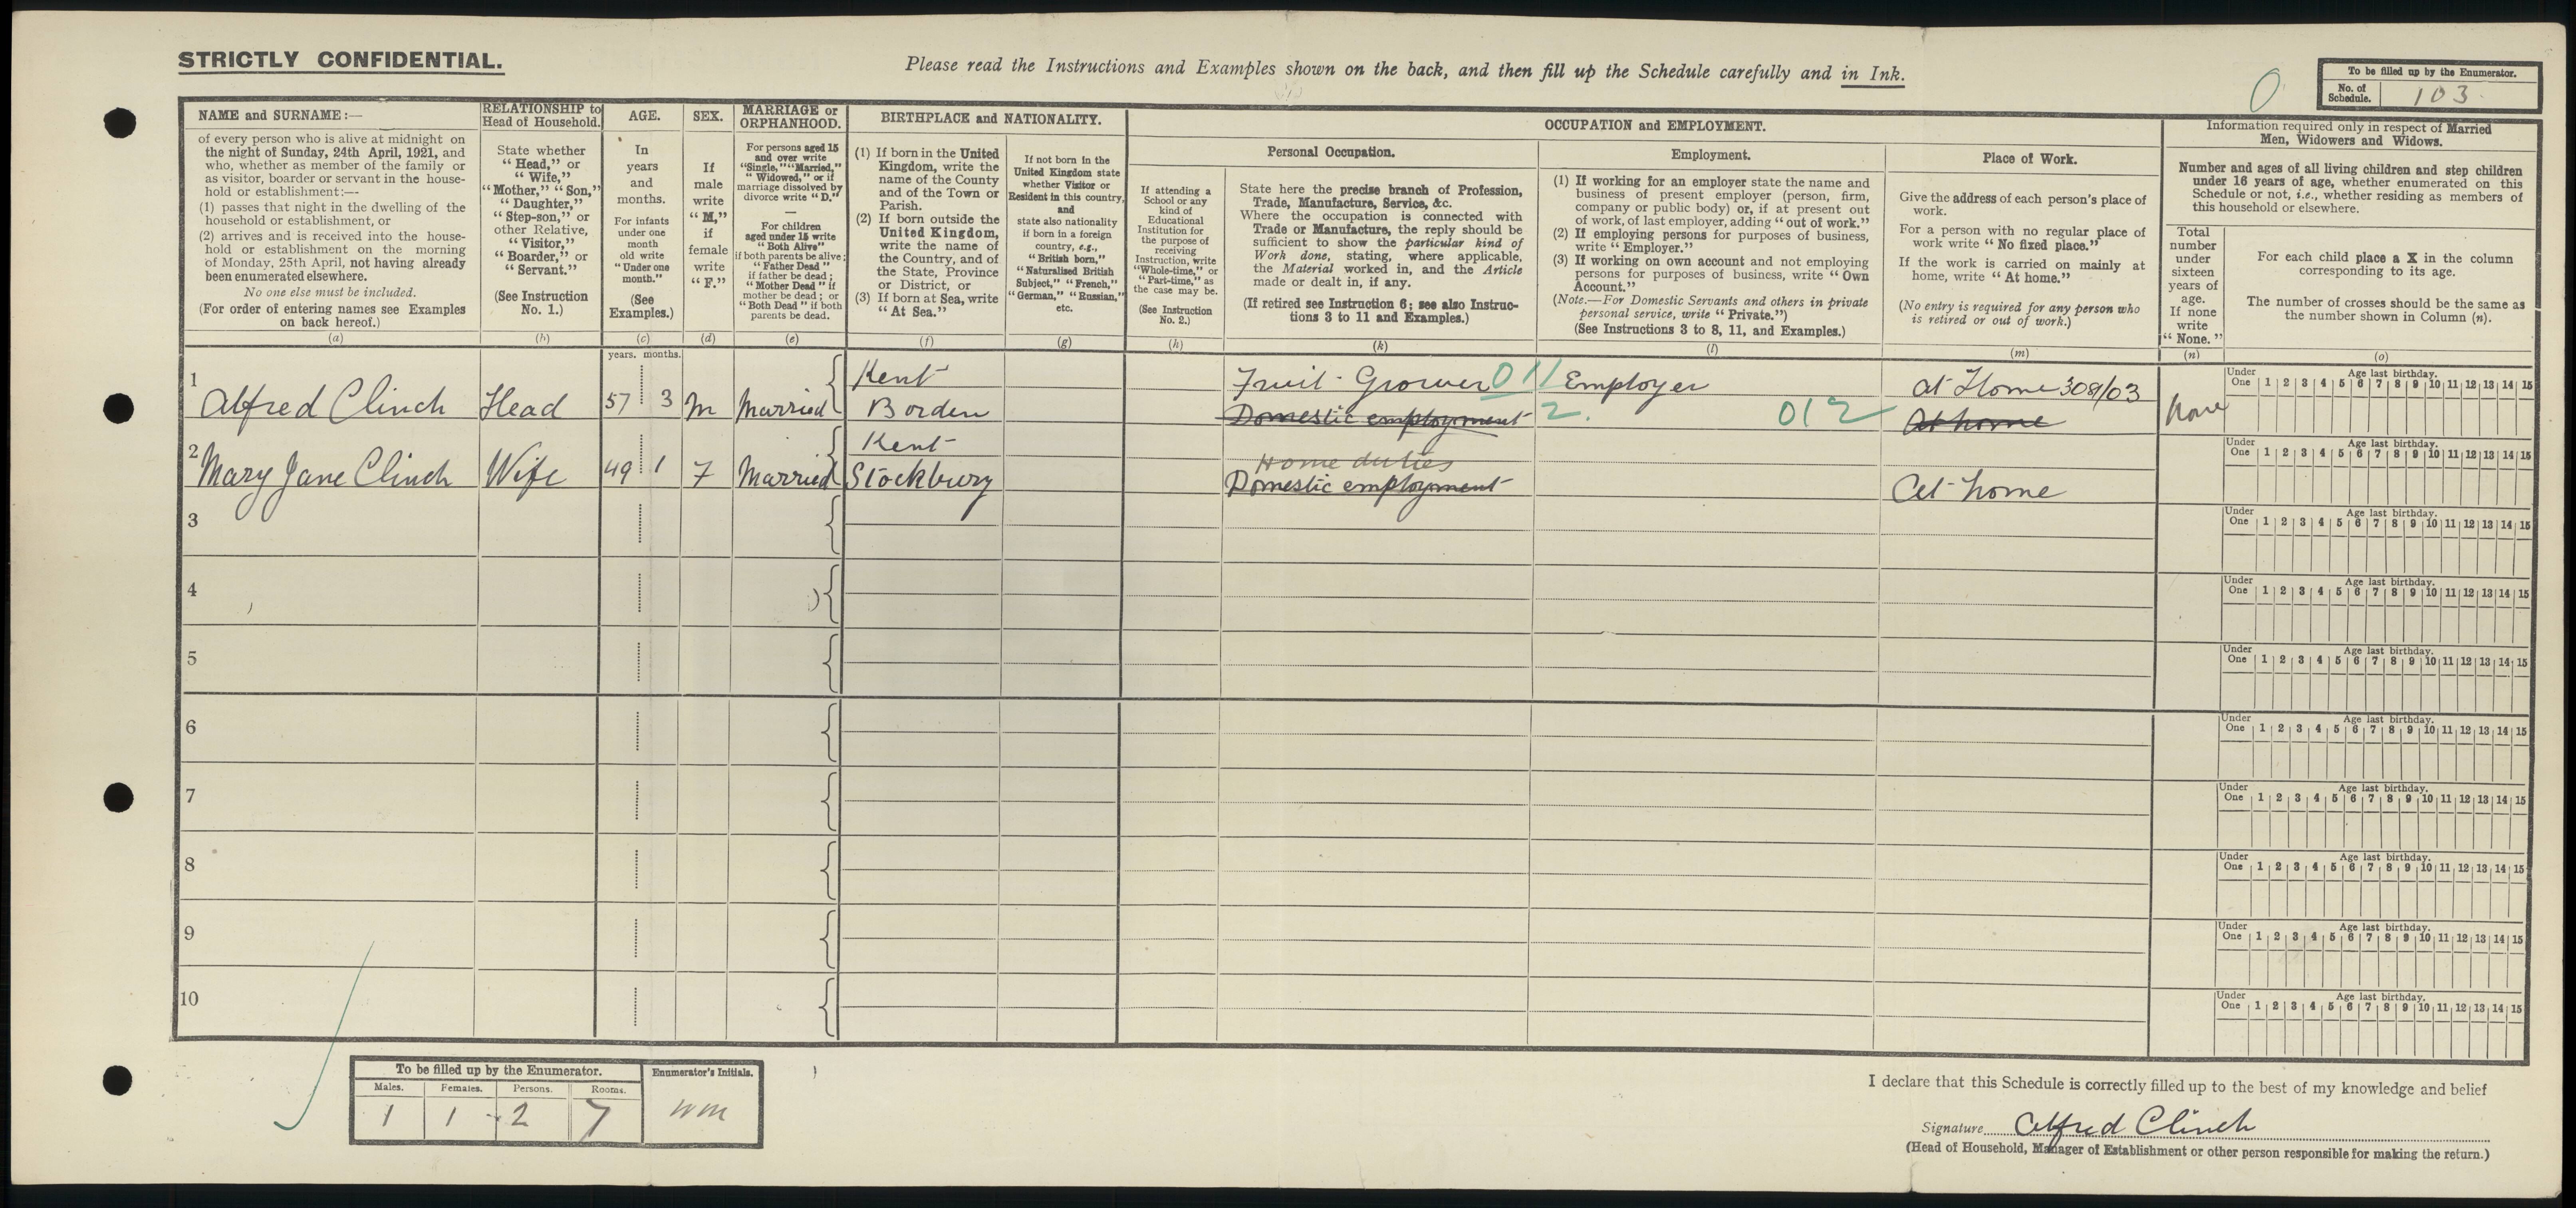 STRICTLY CONFIDENTIAL.
Please read the Instructions and Examples shown on the back, and then fill up the Schedule carefully and in Ink.
0
To be filled up by the Enumerator.
No. of Schedule. 103
NAME and SURNAME:—
of every person who is alive at midnight on
the night of Sunday, 24th April, 1921, and
who, whether as member of the family or
as visitor, boarder or servant in the house-
hold or establishment:—
(1) passes that night in the dwelling of the
household or establishment, or
(2) arrives and is received into the house-
hold or establishment on the morning
of Monday, 25th April, not having already
been enumerated elsewhere.
No one else must be included.
(For order of entering names see Examples
on back hereof.)
(a)
RELATIONSHIP to
Head of Household.
State whether
"Head," or
"Wife,"
"Mother," "Son,"
"Daughter,"
"Step-son," or
other Relative,
"Visitor,"
"Boarder," or
"Servant."
(See Instruction
No. 1.)
(b)
AGE.
In
years
and
months.
For infants
under one
month
old write
"Under one
month."
(See
Examples.)
(c)
SEX.
If
male
write
"M,"
if
female
write
"F."
(d)
MARRIAGE or
ORPHANHOOD.
For persons aged 15
and over write
"Single," "Married,"
"Widowed," or if
marriage dissolved by
divorce write "D."
—
For children
aged under 15 write
"Both Alive"
if both parents be alive;
"Father Dead"
if father be dead;
"Mother Dead" if
mother be dead; or
"Both Dead" if both
parents be dead.
(e)
BIRTHPLACE and NATIONALITY.
(1) If born in the United
Kingdom, write the
name of the County
and of the Town or
Parish.
(2) If born outside the
United Kingdom,
write the name of
the Country, and of
the State, Province
or District, or
(3) If born at Sea, write
"At Sea."
(f)
If not born in the
United Kingdom state
whether Visitor or
Resident in this country,
and
state also nationality
if born in a foreign
country, e.g.,
"British born,"
"Naturalised British
Subject," "French,"
"German," "Russian,"
etc.
(g)
OCCUPATION and EMPLOYMENT.
Personal Occupation.
If attending a
School or any
kind of
Educational
Institution for
the purpose of
receiving
Instruction, write
"Whole-time," or
"Part-time," as
the case may be.
(See Instruction
No. 2.)
(h)
State here the precise branch of Profession,
Trade, Manufacture, Service, &c.
Where the occupation is connected with
Trade or Manufacture, the reply should be
sufficient to show the particular kind of
Work done, stating, where applicable,
the Material worked in, and the Article
made or dealt in, if any.
(If retired see Instruction 6; see also Instruc-
tions 3 to 11 and Examples.)
(k)
Employment.
(1) If working for an employer state the name and
business of present employer (person, firm,
company or public body) or, if at present out
of work, of last employer, adding "out of work."
(2) If employing persons for purposes of business,
write "Employer."
(3) If working on own account and not employing
persons for purposes of business, write "Own
Account."
(Note.—For Domestic Servants and others in private
personal service, write "Private.")
(See Instructions 3 to 8, 11, and Examples.)
(l)
Place of Work.
Give the address of each person's place of
work.
For a person with no regular place of
work write "No fixed place."
If the work is carried on mainly at
home, write "At home."
(No entry is required for any person who
is retired or out of work.)
(m)
Information required only in respect of Married
Men, Widowers and Widows.
Number and ages of all living children and step children
under 16 years of age, whether enumerated on this
Schedule or not, i.e., whether residing as members of
this household or elsewhere.
Total
number
under
sixteen
years of
age.
If none
write
"None."
(n)
For each child place a X in the column
corresponding to its age.
The number of crosses should be the same as
the number shown in Column (n).
(o)
years. months.
1 Alfred Clinch Head 57 3 M Married Kent Borden Fruit-Grower 011 Employer at Home 308/03 None
Domestic employment 2. 012 At home
Under One Age last birthday. 1 2 3 4 5 6 7 8 9 10 11 12 13 14 15
2 Mary Jane Clinch Wife 49 1 F Married Kent Stockbury Home duties
Domestic employment At home
Under One Age last birthday. 1 2 3 4 5 6 7 8 9 10 11 12 13 14 15
3
Under One Age last birthday. 1 2 3 4 5 6 7 8 9 10 11 12 13 14 15
4
Under One Age last birthday. 1 2 3 4 5 6 7 8 9 10 11 12 13 14 15
5
Under One Age last birthday. 1 2 3 4 5 6 7 8 9 10 11 12 13 14 15
6
Under One Age last birthday. 1 2 3 4 5 6 7 8 9 10 11 12 13 14 15
7
Under One Age last birthday. 1 2 3 4 5 6 7 8 9 10 11 12 13 14 15
8
Under One Age last birthday. 1 2 3 4 5 6 7 8 9 10 11 12 13 14 15
9
Under One Age last birthday. 1 2 3 4 5 6 7 8 9 10 11 12 13 14 15
10
Under One Age last birthday. 1 2 3 4 5 6 7 8 9 10 11 12 13 14 15
To be filled up by the Enumerator.
Males. Females. Persons. Rooms.
1 1 2 7
Enumerator's Initials.
I declare that this Schedule is correctly filled up to the best of my knowledge and belief
Signature Alfred Clinch
(Head of Household, Manager of Establishment or other person responsible for making the return.)